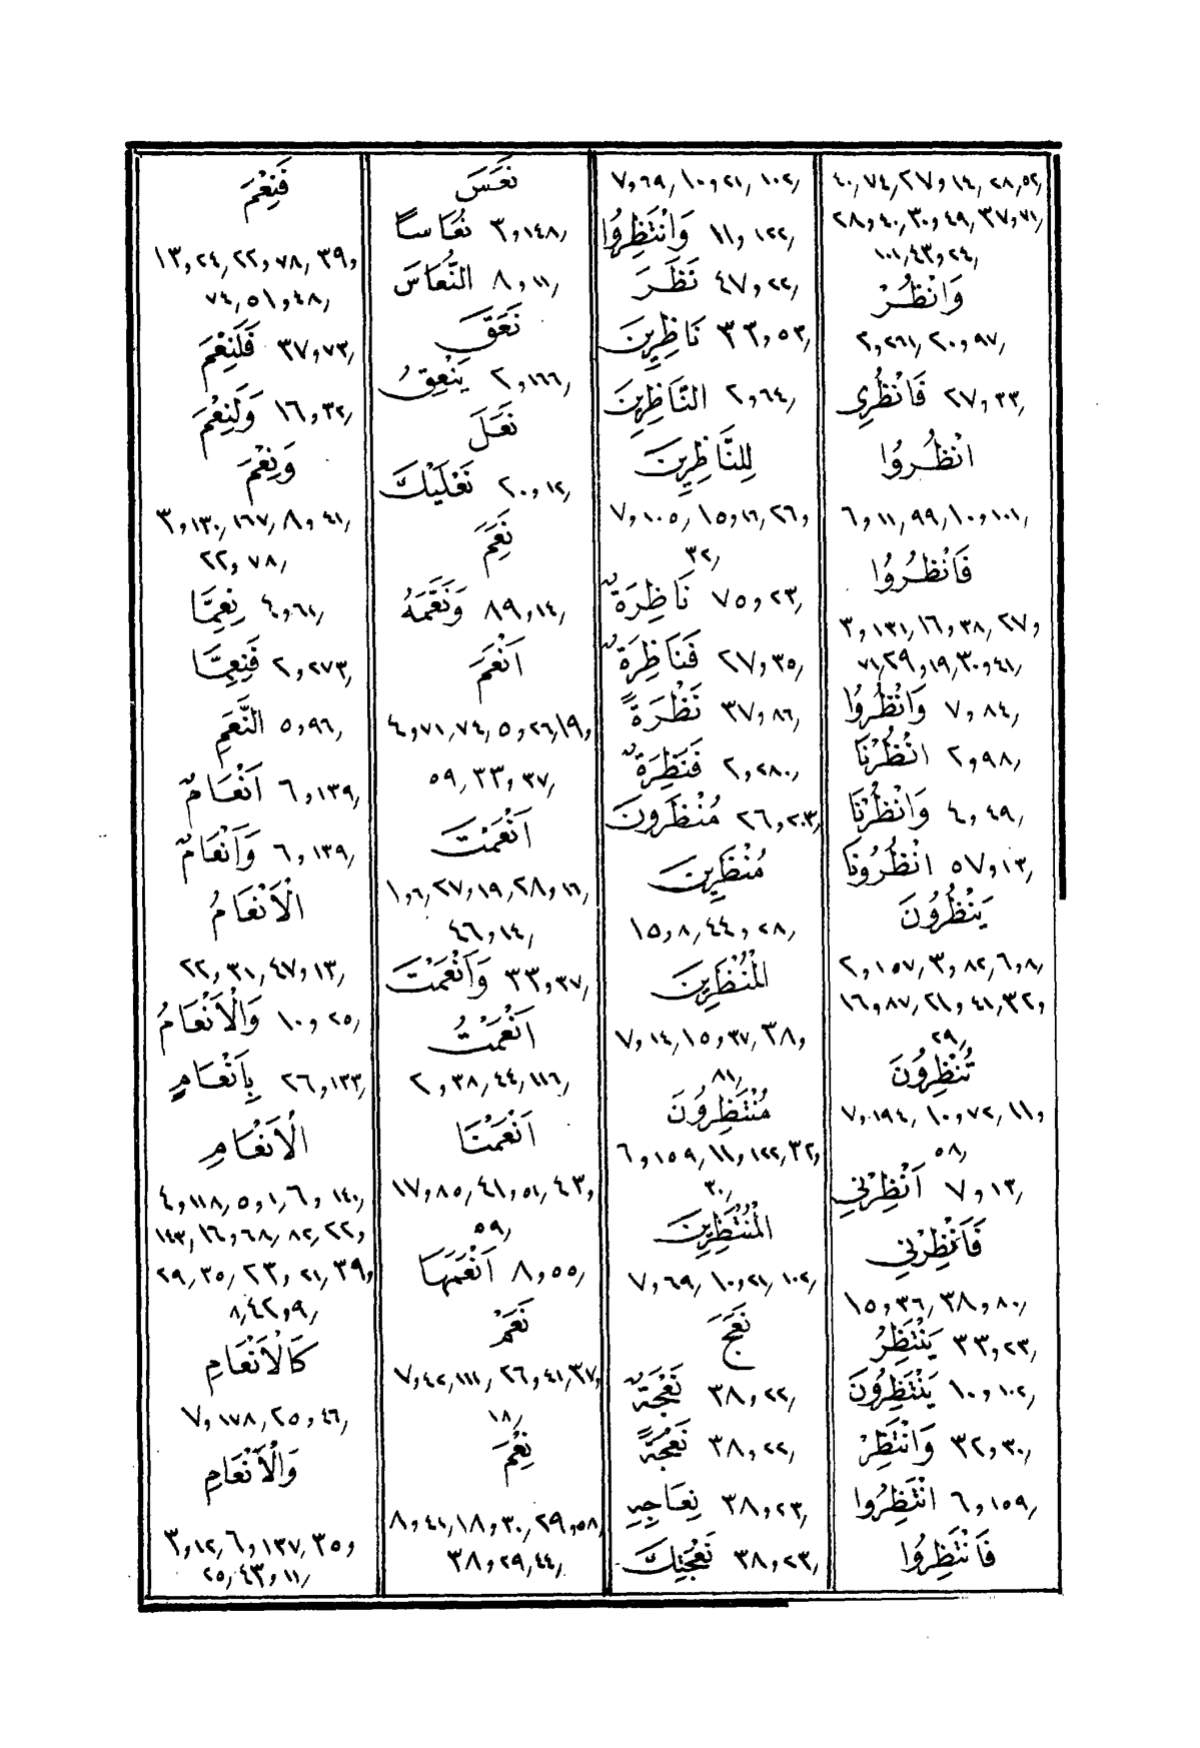 ٤٠,٧٤, ٢٧و١٤, ٢٨,٥٢,
٢٨و٤٠, ٣٠و٤٩, ٣٧و٧١,
١٠١, ٤٣و٢٤,
وَانْظُرْ
٢و٢٦١, ٢٠و٩٧,
٢٧و٣٣, فَانْظُرِى
انْظُرُوا
٦و١١, ٩٩, ١٠و١٠١,
فَانْظُرُوا
٣و١٣١, ١٦و٣٨, ٢٧و
٧١, ٢٩و١٩, ٣٠و٤١,
٧و٨٤, وَانْظُرُوا
٢و٩٨, انْظُرْنَا
٤و٤٩, وَانْظُرْنَا
٥٧و١٣, انْظُرُونَا
يَنْظُرُونَ
٢و١٥٧, ٣و٨٢, ٦و٨,
١٦و٨٧, ٢١و٤١, ٣٢و
٢٩,
تُنْظِرُونَ
٧و١٩٤, ١٠و٧٢, ١١و
٥٨,
٧و١٣, اَنْظِرْنِي
فَاَنْظِرْنِي
١٥و٣٦, ٣٨و٨٠,
٣٣و٢٣, يَنْتَظِرُ
١٠و١٠٢, يَنْتَظِرُونَ
٣٢و٣٠, وَانْتَظِرْ
٦و١٥٩, انْتَظِرُوا
فَانْتَظِرُوا
٧و٦٩, ١٠و٢١, ١٠٢,
١١و١٢٢, وَانْتَظِرُوا
٤٧و٢٢, نَظَرَ
٣٣و٥٣, نَاظِرِينَ
٢و٦٤, النَّاظِرِينَ
لِلنَّاظِرِينَ
٧و١٠٥, ١٥و١٦, ٢٦و
٣٢,
٧٥و٢٣, نَاظِرَةٌ
٢٧و٣٥, فَنَاظِرَةٌ
٣٧و٨٦, نَظْرَةً
٢و٢٨٠, فَنَظِرَةٌ
٢٦و٢٠٣, مُنْظَرُونَ
مُنْظَرِينَ
١٥و٨, ٤٤و٢٨,
الْمُنْظَرِينَ
٧و١٤, ١٥و٣٧, ٣٨و
٨١,
مُنْتَظِرُونَ
٦و١٥٩, ١١و١٢٢, ٣٢و
٣٠,
الْمُنْتَظِرِينَ
٧و٦٩, ١٠و٢١, ١٠٢,
نَعَجَ
٣٨و٢٢, نَعْجَةٌ
٣٨و٢٢, نَعْجَةً
٣٨و٢٣, نِعَاجِهِ
٣٨و٢٣, نَعْجَتِكَ
نَعَسَ
٣و١٤٨, نُعَاسًا
٨و١١, النُّعَاسَ
نَعَقَ
٢و١٦٦, يَنْعِقُ
نَعَلَ
٢٠و١٢, نَعْلَيْكَ
نَعِمَ
٨٩و١٤, وَنَعَّمَهُ
اَنْعَمَ
٤و٧١, ٧٤, ٥و٢٦, ١٩و
٥٩, ٣٣و٣٧,
اَنْعَمْتَ
١و٦, ٢٧و١٩, ٢٨و١٦,
٤٦و١٤,
٣٣و٣٧, وَاَنْعَمْتَ
اَنْعَمْتُ
٢و٣٨, ٤٤, ١١٦,
اَنْعَمْنَا
١٧و٨٥, ٤١و٥١, ٤٣و
٥٩,
٨و٥٥, اَنْعَمَهَا
نَعَمْ
٧و٤٢, ١١١, ٢٦و٤١, ٣٧و
١٨,
نِعْمَ
٨و٤١, ١٨و٣٠, ٢٩و٥٨,
٣٨و٢٩, ٤٤,
فَنِعْمَ
١٣و٢٤, ٢٢و٧٨, ٣٩و
٧٤, ٥١و٤٨,
٣٧و٧٣, فَلَنِعْمَ
١٦و٣٢, وَلَنِعْمَ
وَنِعْمَ
٣و١٣٠, ١٦٧, ٨و٤١,
٢٢و٧٨,
٤و٦١, نِعِمَّا
٢و٢٧٣, فَنِعِمَّا
٥و٩٦, النَّعَمِ
٦و١٣٩, اَنْعَامٌ
٦و١٣٩, وَاَنْعَامٌ
الْاَنْعَامُ
٢٢و٣١, ٤٧و١٣,
١٠و٢٥, وَالْاَنْعَامُ
٢٦و١٣٣, بِاَنْعَامٍ
الْاَنْعَامِ
٤و١١٨, ٥و١, ٦و١٤٠,
١٤٣, ١٦و٦٨, ٨٢, ٢٢و
٢٩, ٣٥, ٢٣و٢١, ٣٩و
٨, ٤٢و٩,
كَالْاَنْعَامِ
٧و١٧٨, ٢٥و٤٦,
وَالْاَنْعَامِ
٣و١٢, ٦و١٣٧, ٣٥و
٢٥, ٤٣و١١,